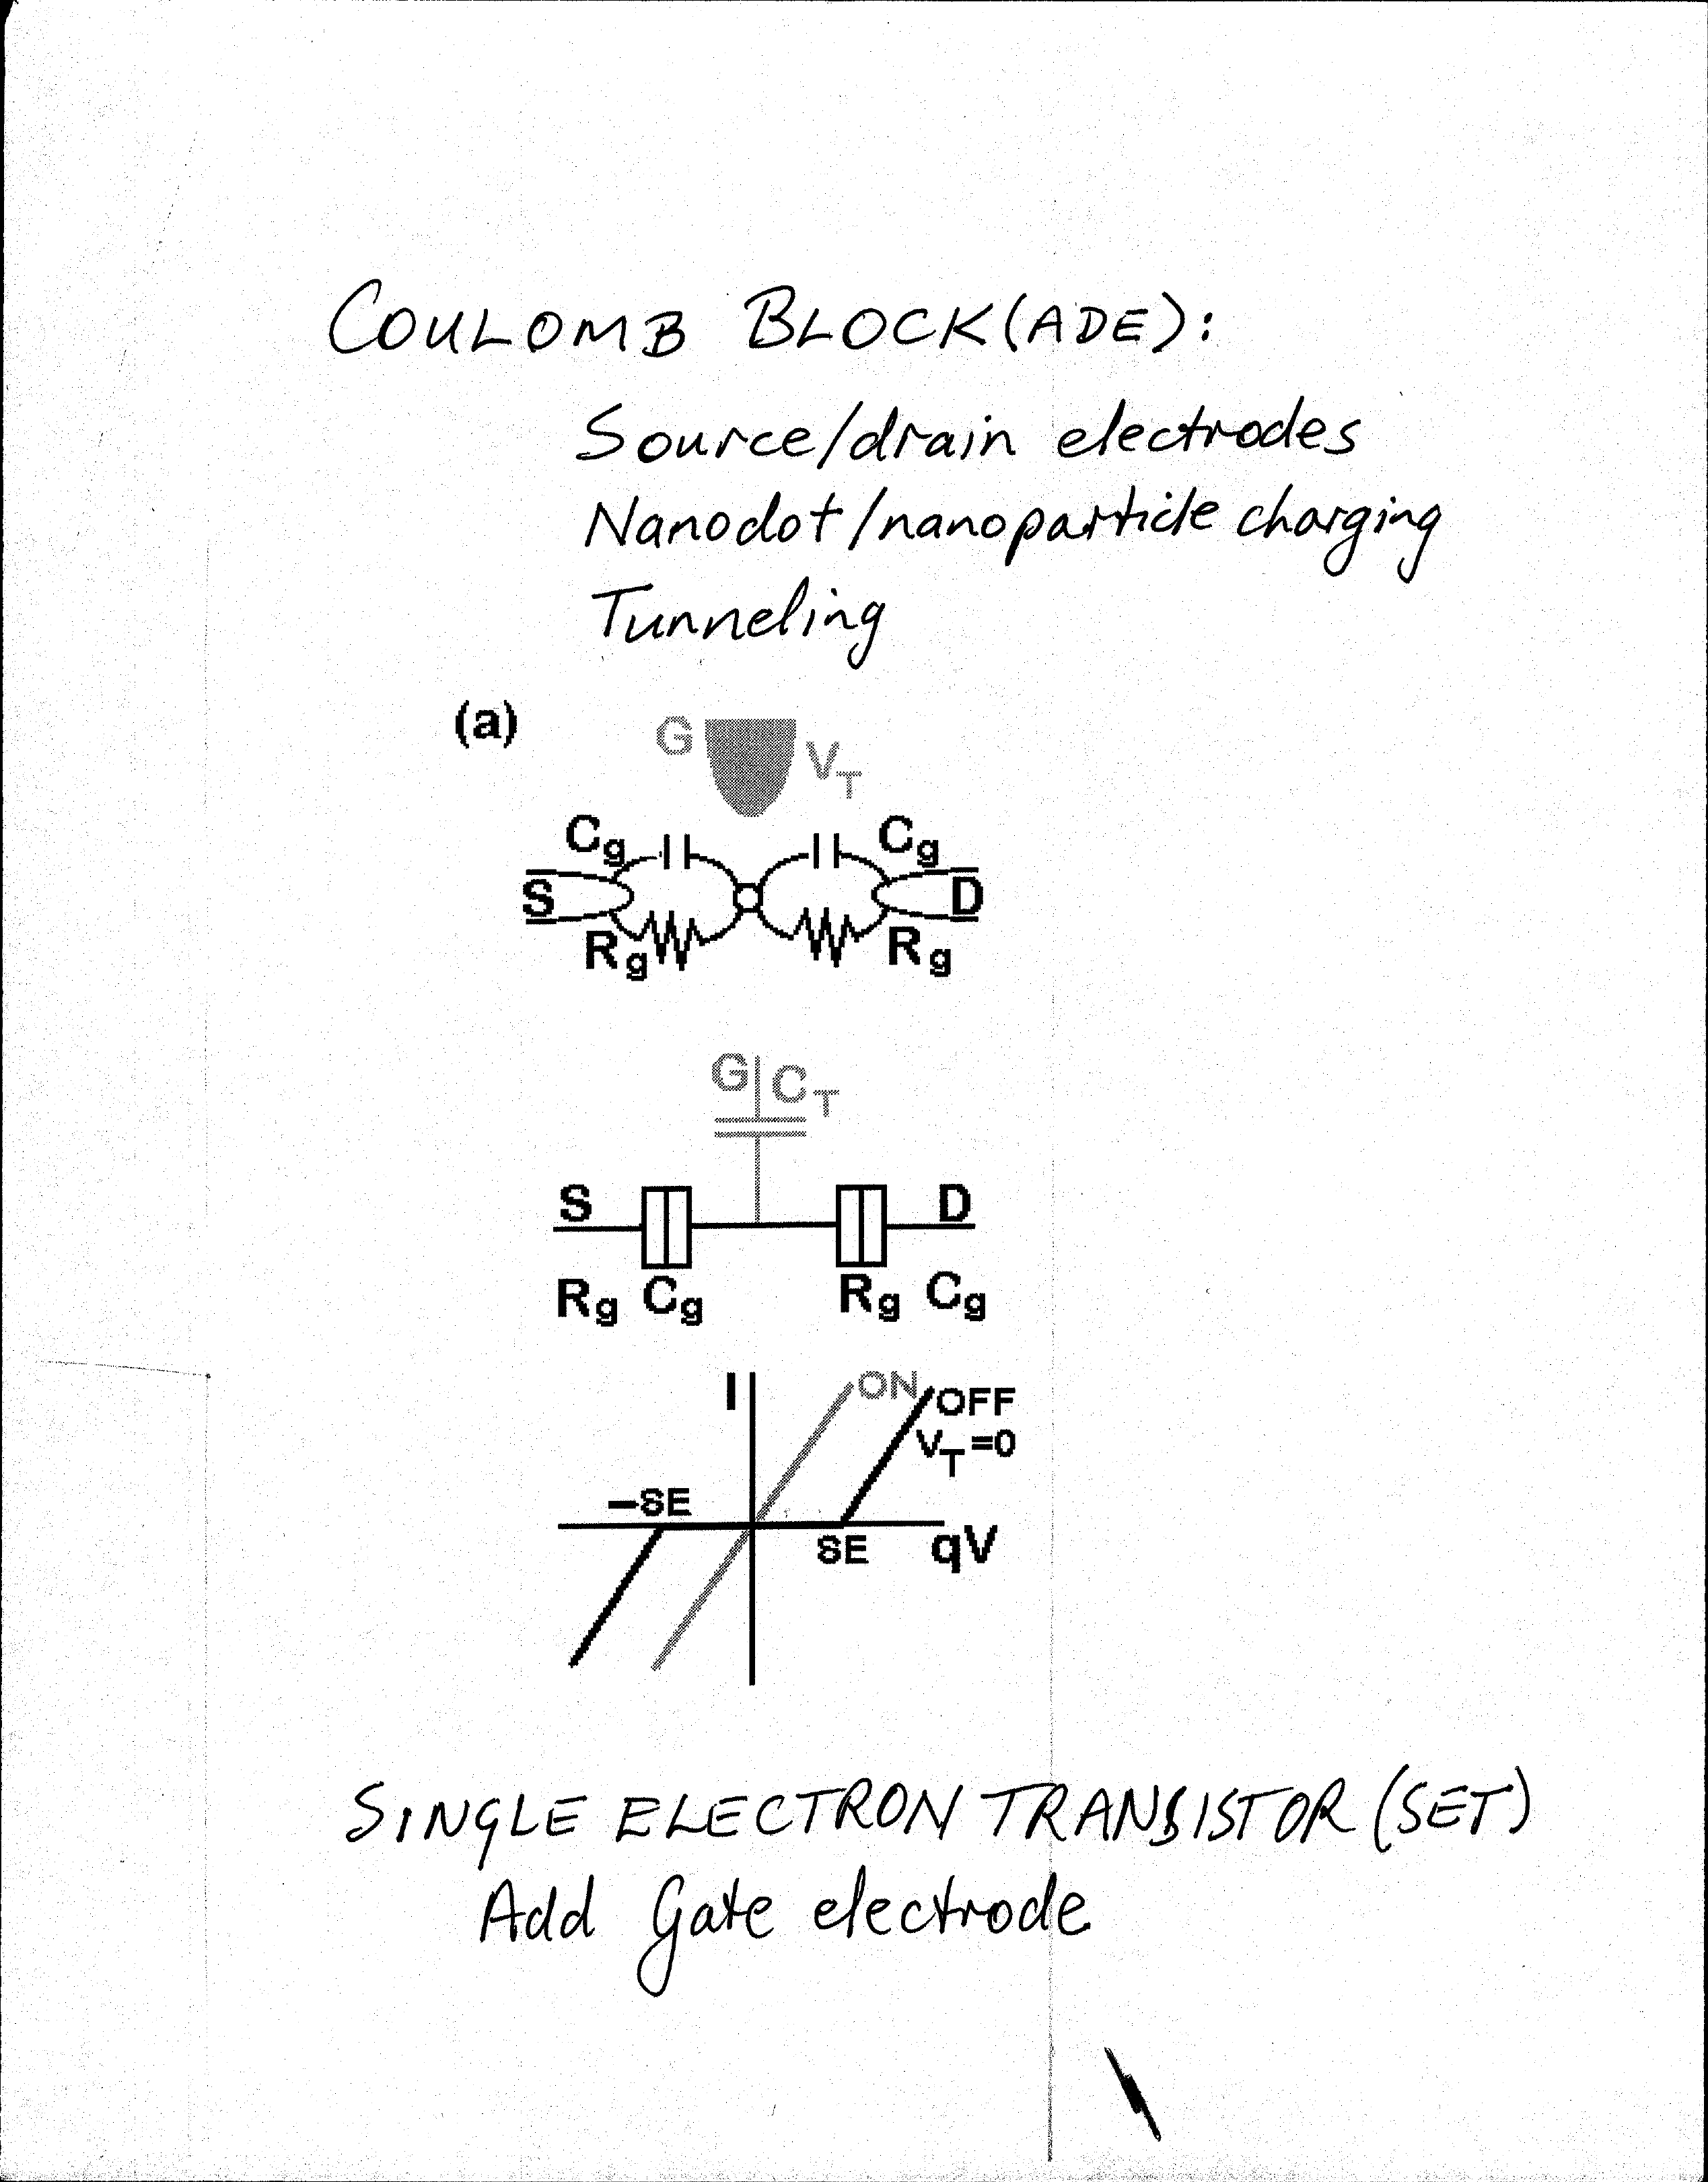 COULOMB BLOCK(ADE):
Source/drain electrodes
Nanodot/nanoparticle charging
Tunneling
(a)
G VT
Cg Cg
S D
Rg Rg
G CT
S D
Rg Cg Rg Cg
I ON OFF
VT=0
-δE
δE qV
SINGLE ELECTRON TRANSISTOR (SET)
Add Gate electrode